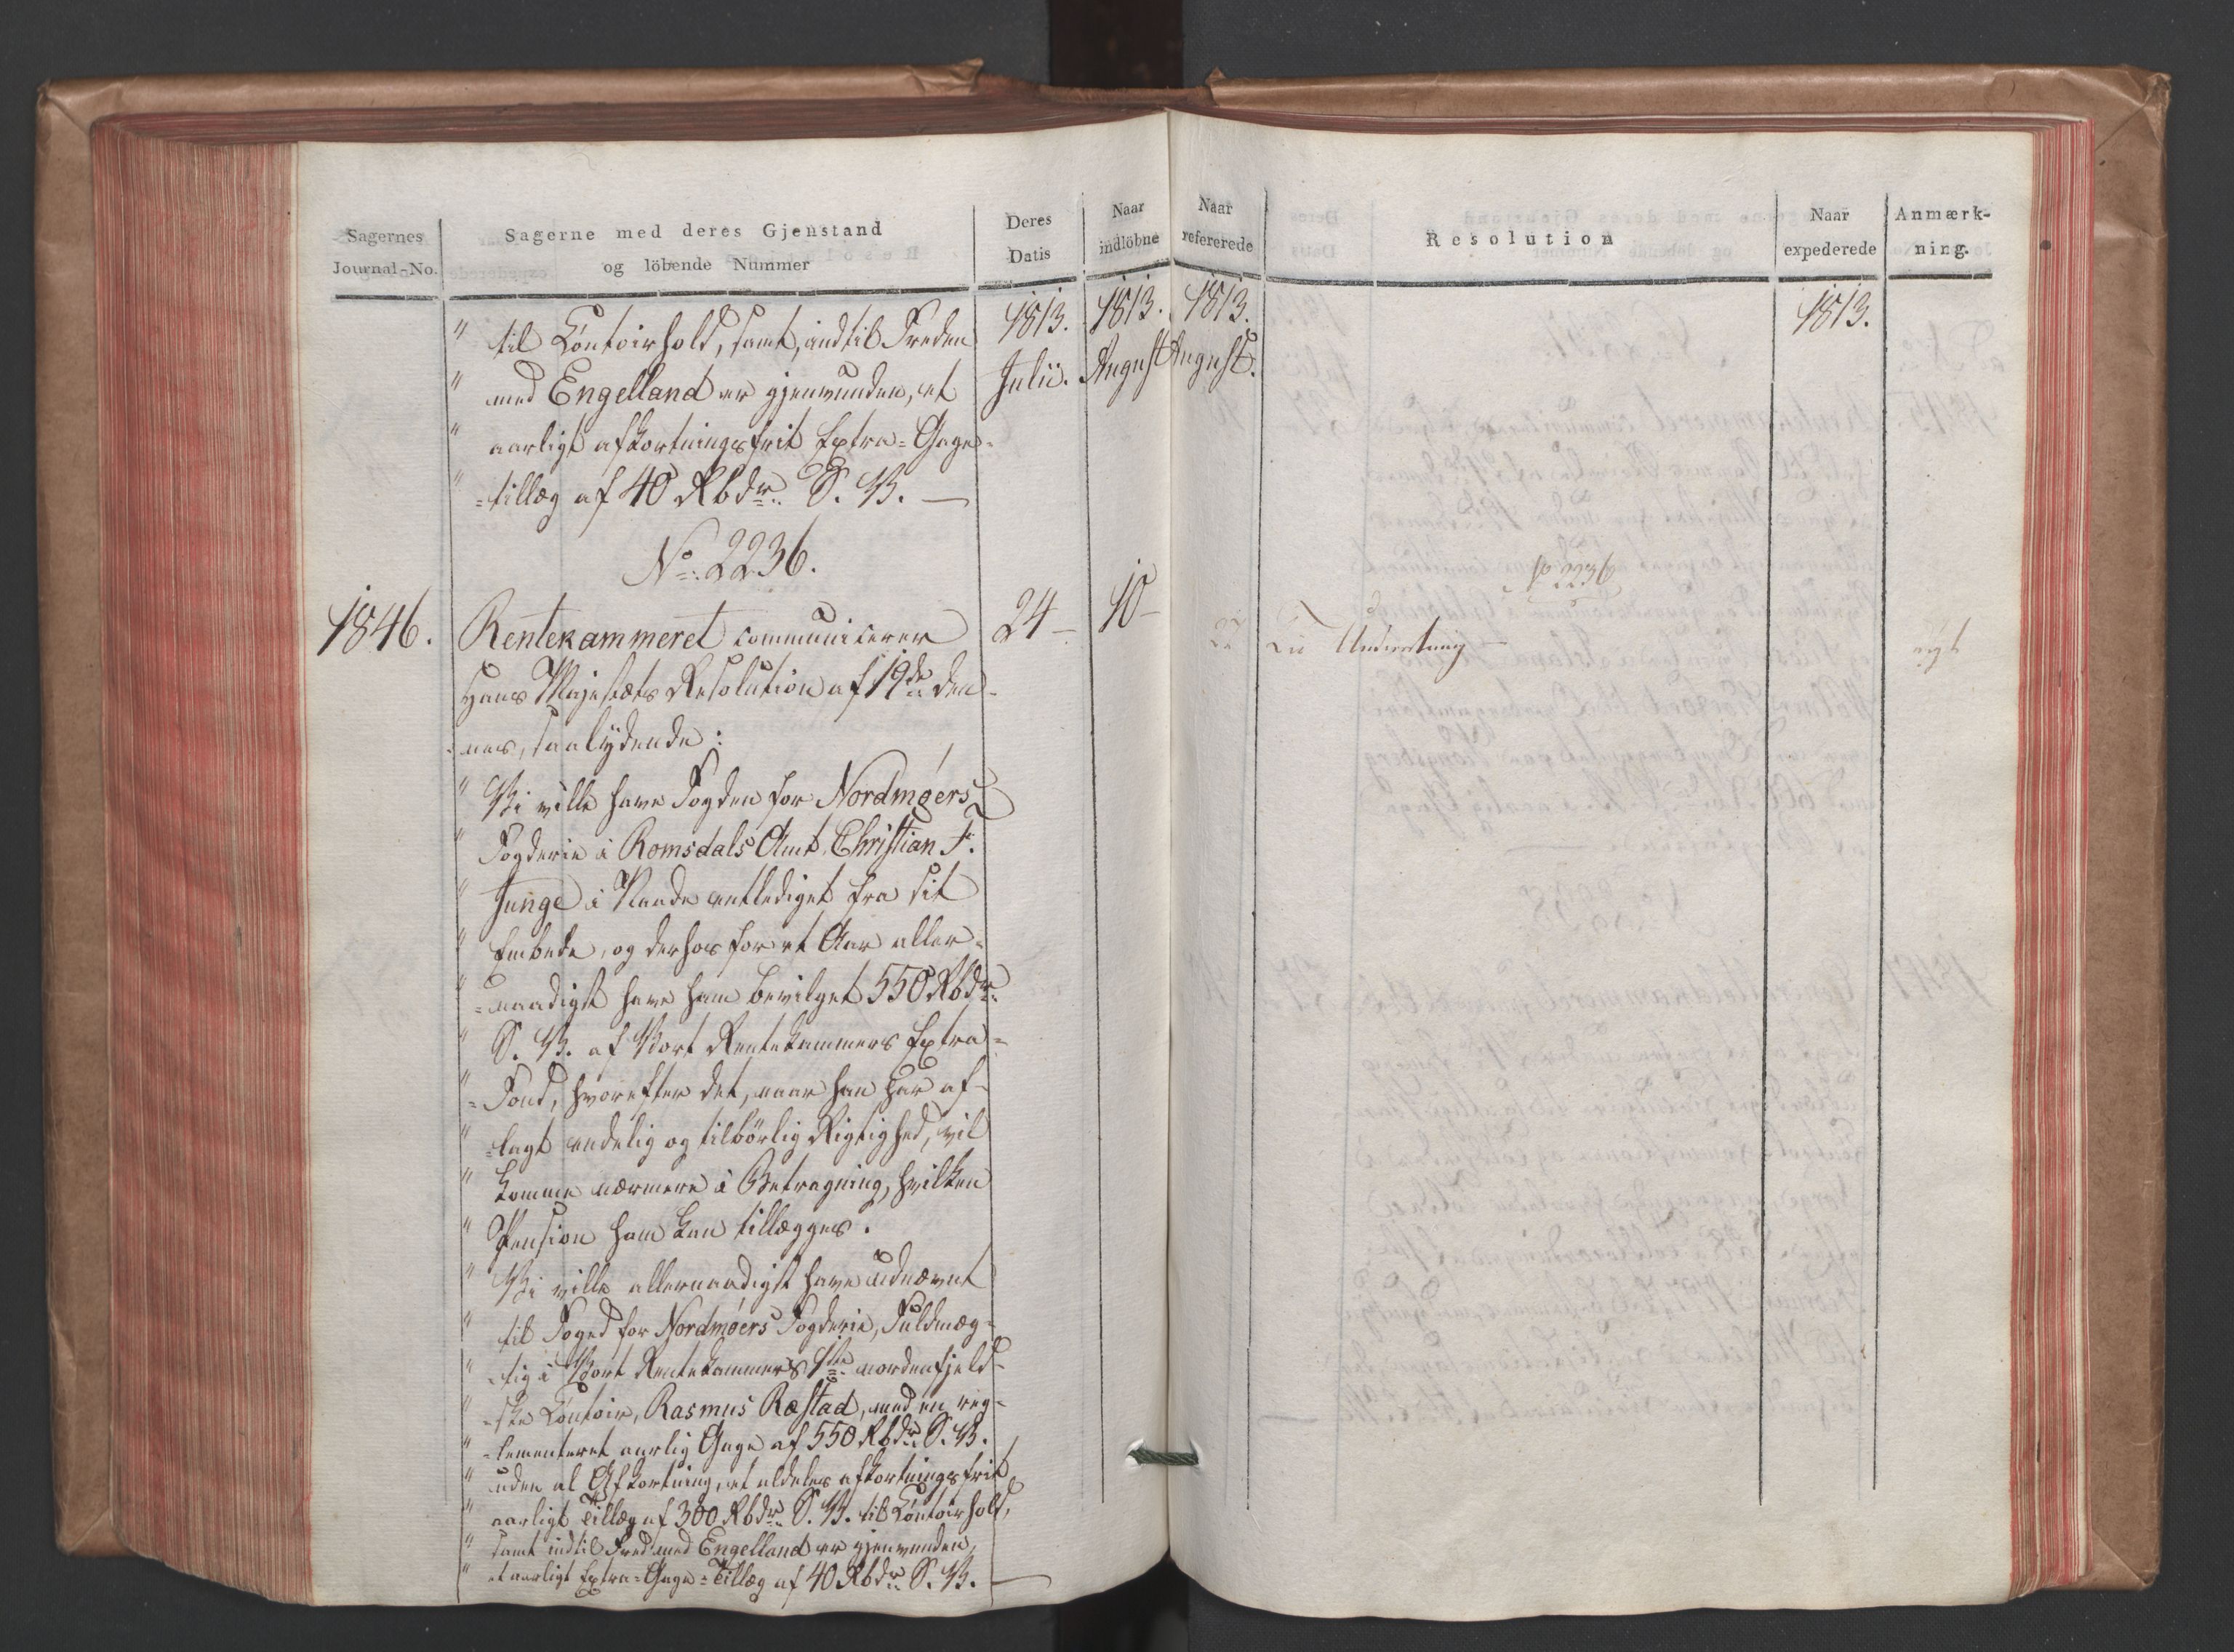 Sagernes
Journal-No.
Sagerne med deres Gjenstand
og löbende Nummer
Deres
Datis
Naar
indlöbne
Naar
refererede
Resolution
Naar
expederede
Anmærk-
ning.
1813. 1813. 1813. 1813.
Julii. August August.
" til Contoirhold, samt, indtil Freden
" med Engelland er gjenvunden, et
" aarligt afkortningsfrit Extra-Gage-
" -tillæg af 40 Rbdr. S. V. —
No. 2236.
1846. Rentekammeret communicerer 24 — 10 —
Hans Majestæts Resolution af 19de den-
nes, saalydende:
" Vi ville have Fogden for Nordmøers
" Fogderie i Romsdals Amt, Christian F.
" Junge i Naade entlediget fra sit
" Embede, og derhos for et Aar aller-
" -naadigst have ham bevilget 550 Rbdr.
" S. V. af Vort Rentekammers Extra-
" -Fond, hvorefter det, naar han har af-
" -lagt endelig og tilbørlig Rigtighed, vil
" komme nærmere i Betragning, hvilken
" Pension ham kan tillægges.
" Vi ville allernaadigst have udnævnt
" til Foged for Nordmøers Fogderie, Fuldmæg-
" -tig i Vort Rentekammers 1ste nordenfjeld-
" -ske Contoir, Rasmus Ræstad, med en reg-
" -lementeret aarlig Gage af 550 Rbdr. S. V.
" uden al Afkortning, et aldeles afkortningsfrit
" aarligt Tillæg af 300 Rbdr. S. V. til Contoirhold,
" samt indtil Fred med Engelland er gjenvunden,
" et aarligt Extra-Gage-Tillæg af 40 Rbdr. S. V. —
No 2236
Til Underretning —